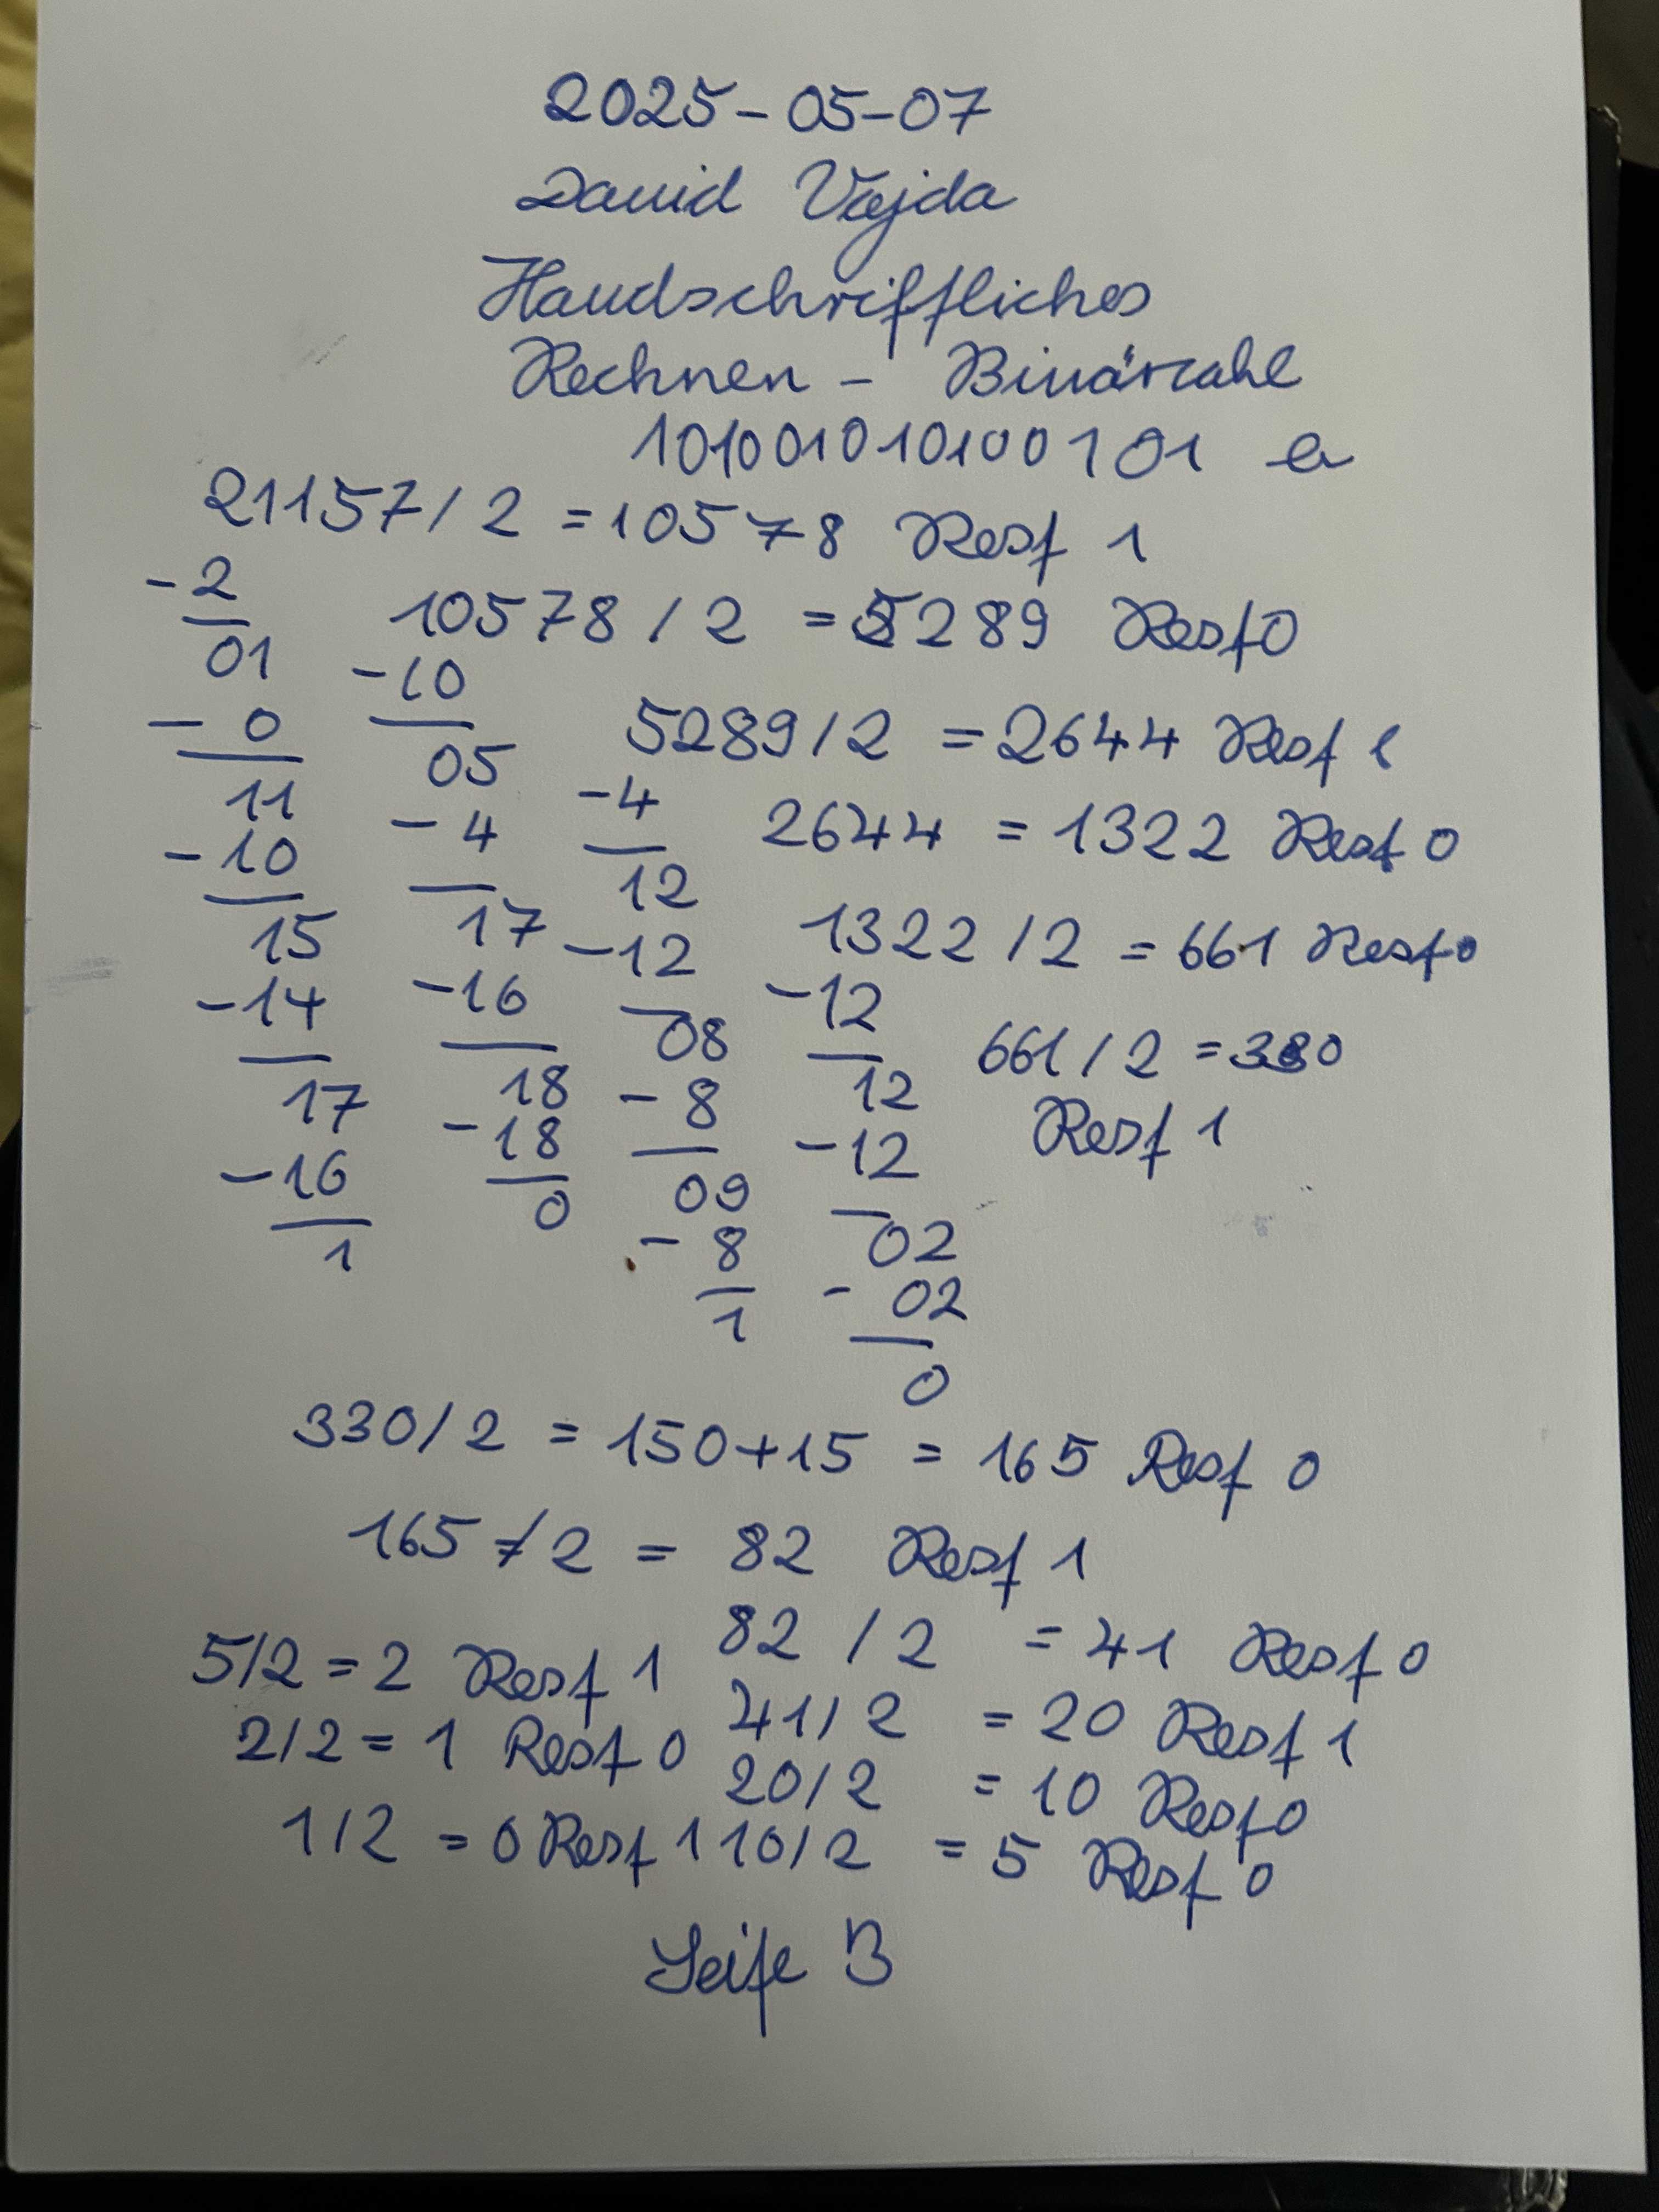 2025-05-07
David Vajda
Handschriftliches
Rechnen - Binärzahl
101001010100101
21157/2 = 10578 Rest 1
-2
01
-0
11
-10
15
-14
17
-16
1
10578/2 = 5289 Rest 0
-10
05
-4
17
-16
18
-18
0
5289/2 = 2644 Rest 1
-4
12
-12
08
-8
09
-8
1
2644 = 1322 Rest 0
1322/2 = 661 Rest 0
-12
12
-12
02
-02
0
661/2 = 330
Rest 1
330/2 = 150+15 = 165 Rest 0
165/2 = 82 Rest 1
82/2 = 41 Rest 0
41/2 = 20 Rest 1
20/2 = 10 Rest 0
10/2 = 5 Rest 0
5/2 = 2 Rest 1
2/2 = 1 Rest 0
1/2 = 0 Rest 1
Seite B